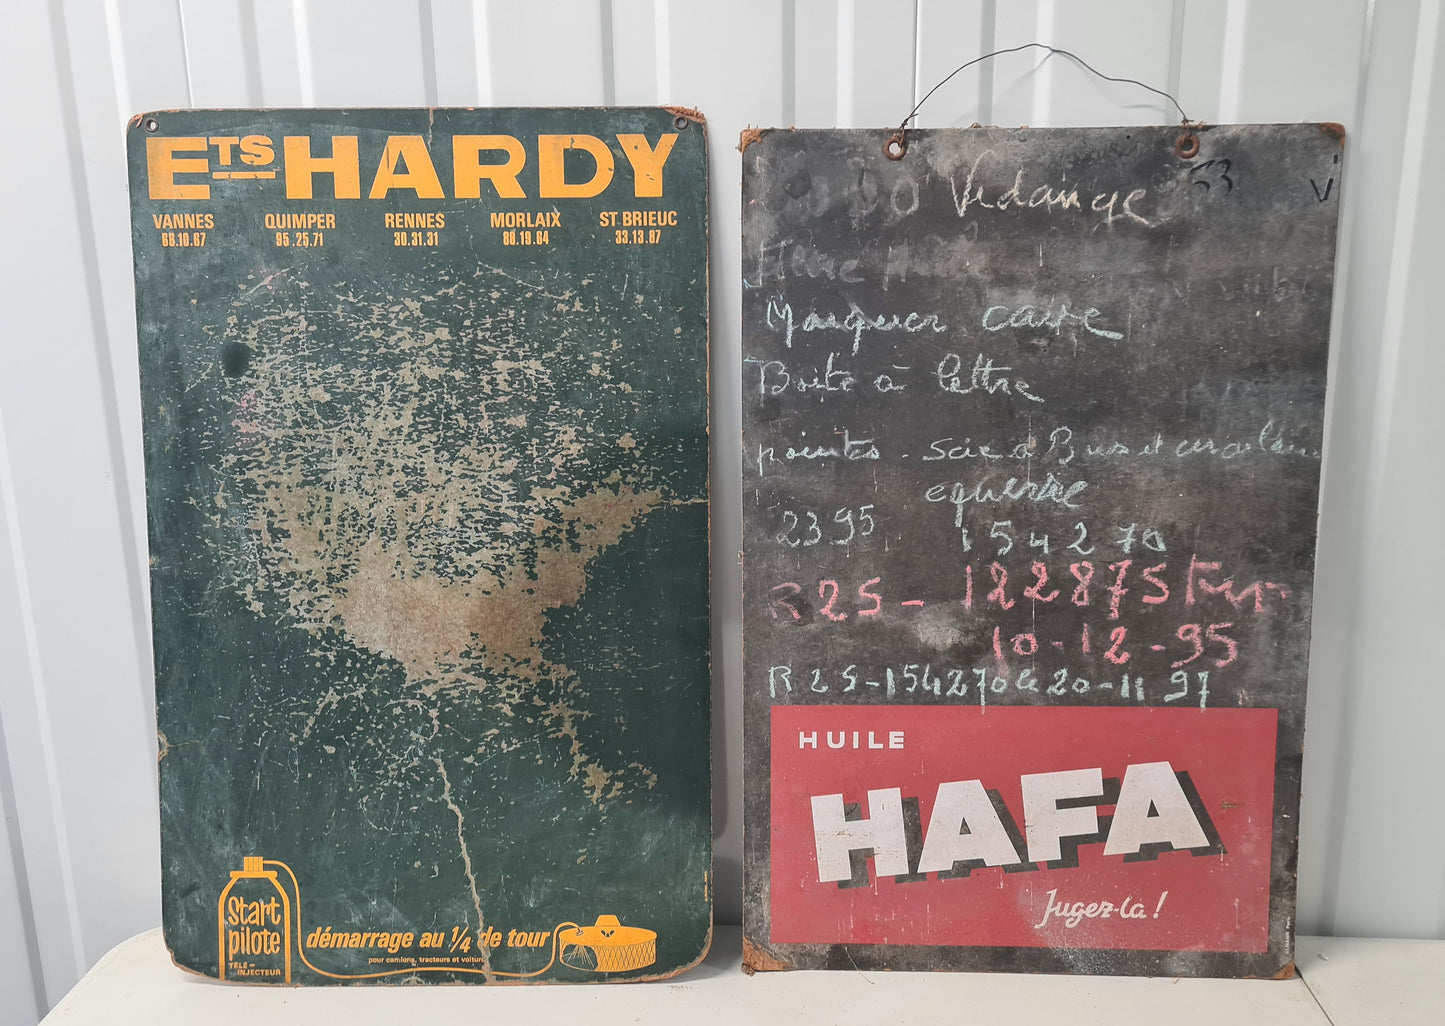 ETS HARDY
VANNES QUIMPER RENNES MORLAIX ST. BRIEUC
66.10.67 95.25.71 30.31.31 88.19.64 33.13.67
Start
pilote
TÉLÉ-
INJECTEUR
démarrage au 1/4 de tour
pour camions, tracteurs et voiture
Vidange
Marquer cave
Boite à lettre
pointes - scie à Bus et circulaire
equerre
2395 154270
R25 - 122875 Km
10-12-95
R25-154270 le 20-11 97
HUILE
HAFA
Jugez-la !